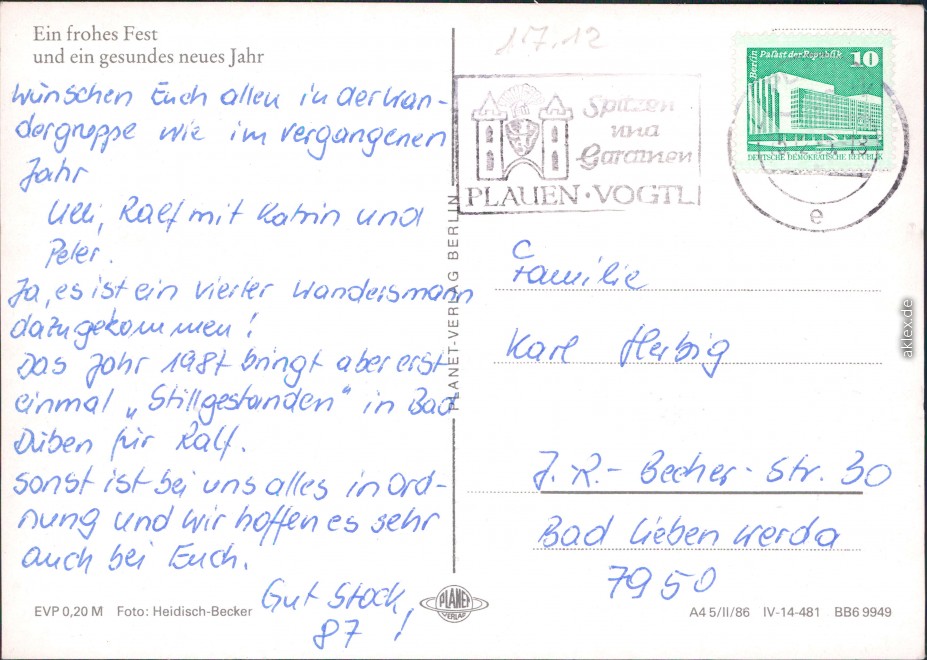 Ein frohes Fest
und ein gesundes neues Jahr
Wünschen Euch allen in der Wan-
dergruppe wie im vergangenen
Jahr
Ulli, Ralf mit Katrin und
Peter.
Ja, es ist ein vierter Wandersmann
dazugekommen!
Das Jahr 1987 bringt aber erst
einmal „Stillgestanden" in Bad
Düben für Ralf.
Sonst ist bei uns alles in Ord-
nung und wir hoffen es sehr
auch bei Euch.
Gut Stock,
87 !
EVP 0,20 M Foto: Heidisch-Becker
PLANET-VERLAG BERLIN
PLANET
VERLAG
17.12
Spitzen
und
Gardinen
PLAUEN · VOGTL
Berlin
Palast der Republik
10
DEUTSCHE DEMOKRATISCHE REPUBLIK
e
Familie
Karl Herbig
J.-R.- Becher-Str. 30
Bad Liebenwerda
7950
A4 5/II/86 IV-14-481 BB6 9949
aklex.de